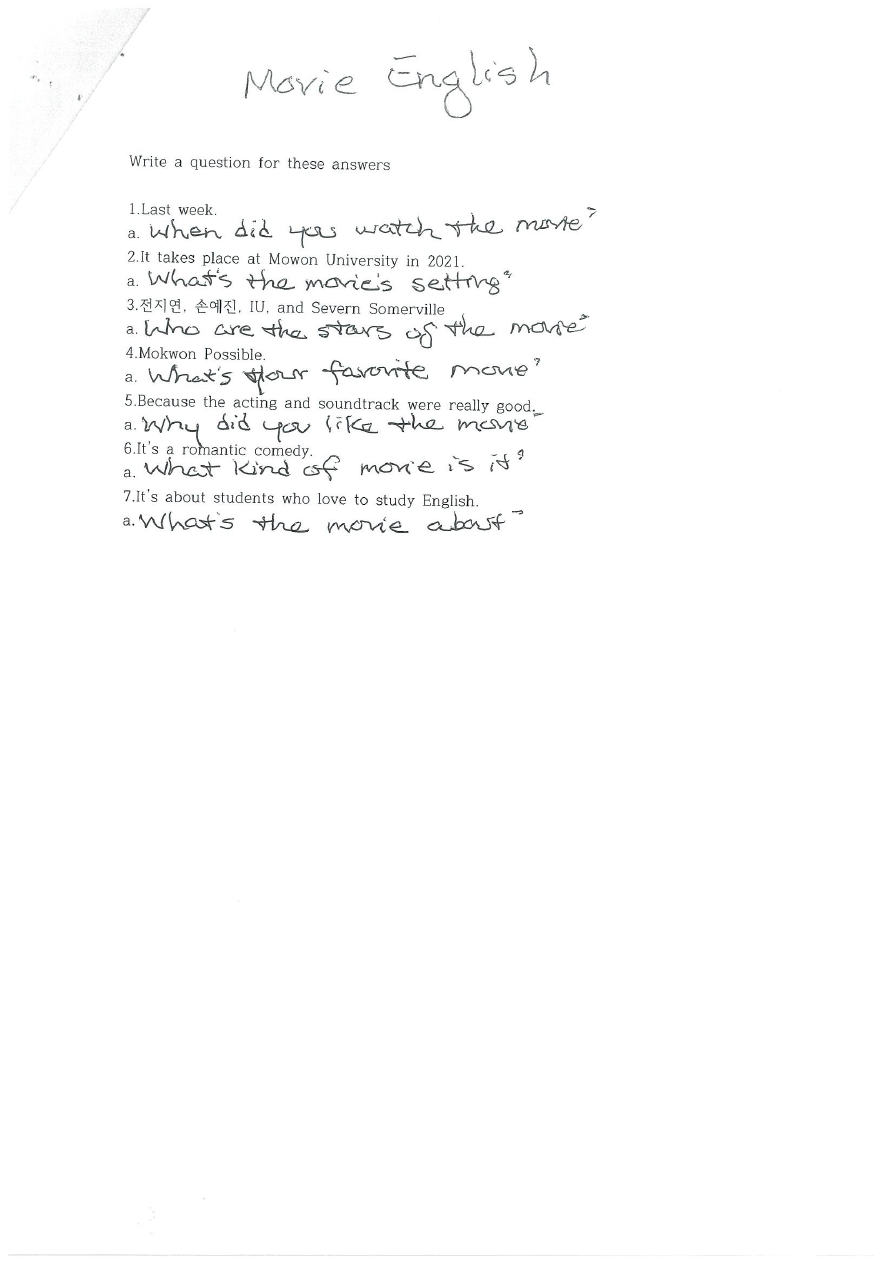 Movie English
Write a question for these answers
1.Last week.
a. When did you watch the movie?
2.It takes place at Mowon University in 2021.
a. What's the movie's setting?
3.전지연, 손예진, IU, and Severn Somerville
a. Who are the stars of the movie?
4.Mokwon Possible.
a. What's your favorite movie?
5.Because the acting and soundtrack were really good.
a. Why did you like the movie?
6.It's a romantic comedy.
a. What kind of movie is it?
7.It's about students who love to study English.
a. What's the movie about?